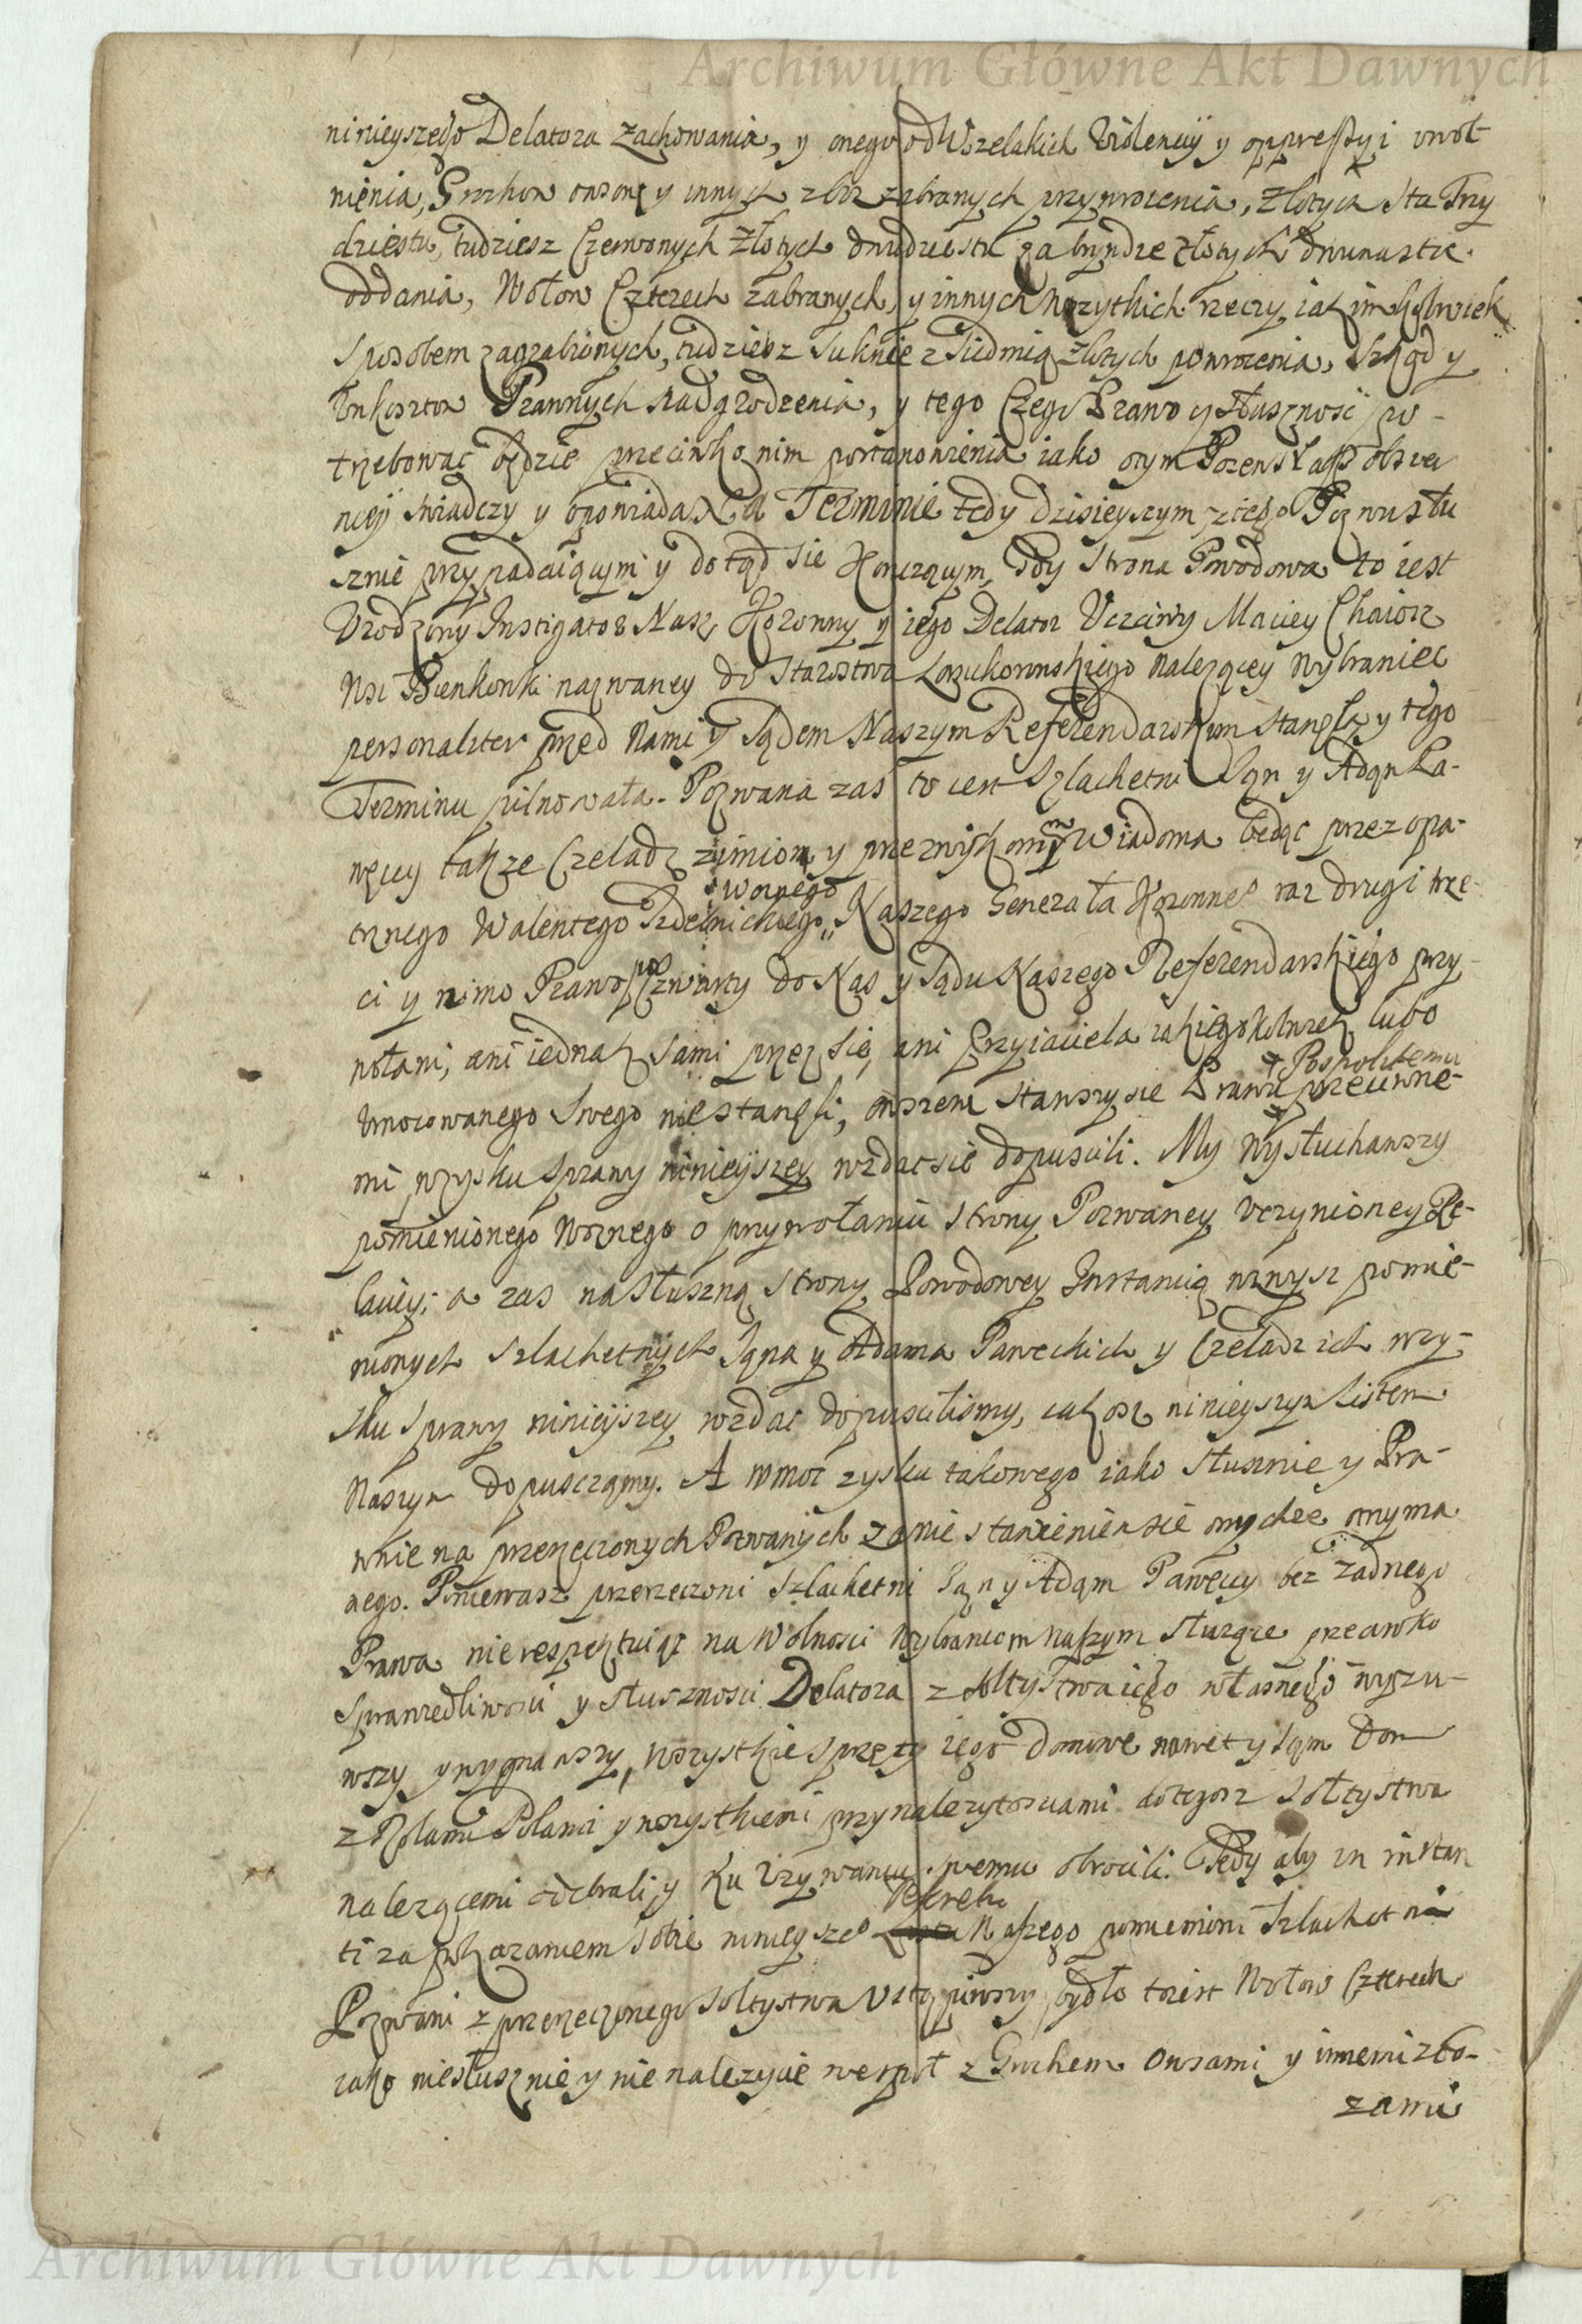 Archiwum Główne Akt Dawnych
ninieyszego Delatora zachowania, y onego od Wszelakich Violencÿi y oppressyi uwol
nienia, Grochow owsow y innych zboz zabranych przywrocenia, złotych sta Trzy
dziestu, tudziesz Czerwonych Złotych dwudziestu za bryndze złotych dwunastu
oddania, Wołow Czterech zabranych, y innych wszytkich rzeczy iakimkolwiek
sposobem zagrabionych, tudziesz suknie z siedmią złotych powrocenia, szkod y
Prawnych nadgrodzenia, y tego Czego Prawo y słusznosc po-
trzebowac będzie przeciwko nim postanowienia iako otym Pozew
swiadczy y opowiada. Na Terminie tedy dzisieyszym z tego Pozwu słu
sznie przypadaiącym y dotąd się Konczącym, gdy strona Powodowa to iest
Urodzony Instigator Nasz Koronny y iego Delator Uczciwy Maciey
Wsi Bienkowki nazwaney do Starostwa należącey Wybraniec
personaliter przed Nami y Sądem Naszym Referendarskim stanęła y tego
Terminu pilnowała. Pozwana zas to iest Szlachetni Jan y Adam Pa-
węccy także Czeladz z imion y przezwisk onym wiadoma będąc przez opa-
trznego Walentego woznego Naszego Generała Koronnego raz drugi trze-
ci y mimo Prawo po Czwarty do Nas y Sądu Naszego Referendarskiego przy-
wołani, ani iednak sami przez się, ani Przyiaciela iakiegokolwiek lubo
Umocowanego swego nie stanęli, owszem stawszy się Prawu Pospolitemu przeciwne-
mi wzysku sprawy ninieyszey wzdac się dopuscili. My wysłuchawszy
pomienionego Woznego o przywołaniu strony Pozwaney uczynioney Re-
laciey, a zas na słuszną strony Powodowey Instancią wzwysz pomie-
nionych szlachetnych Jana y Adama Paweckich y Czeladz ich wzy-
sku sprawy ninieyszey wzdac dopuscilismy, iakosz ninieyszym Listem
Naszym dopuszczamy. A wmoc zysku takowego iako słusznie y Pra-
wnie na przerzeczonych Pozwanych za nie stawieniem się onychze otrzyma
nego. Poniewasz przerzeczoni szlachetni Jan y Adam Pawęccy bez żadnego
Prawa nie respektuiąc na Wolnosci Wybrancom Naszym służące przeciwko
sprawiedliwosci y słusznosci Delatora z sołtystwa iego własnego wyzu-
wszy y wygnawszy, wszystkie sprzęty iego domowe nawet y sam Dom
z Rolami Polami y wszystkiemi przynależytosciami do tegosz sołtystwa
nalezącemi odebrali y ku używaniu swemu obrocili. Tedy aby in instan
ti za pokazaniem sobie ninieyszego Dekretu Naszego pomienieni szlachetni
Pozwani z przerzeczonego sołtystwa ustąpiwszy, bydło to iest Wołow Czterech
iako niesłusznie y nie nalezycie wespoł z Grochem Owsami y innemi zbo-
zami
Archiwum Główne Akt Dawnych